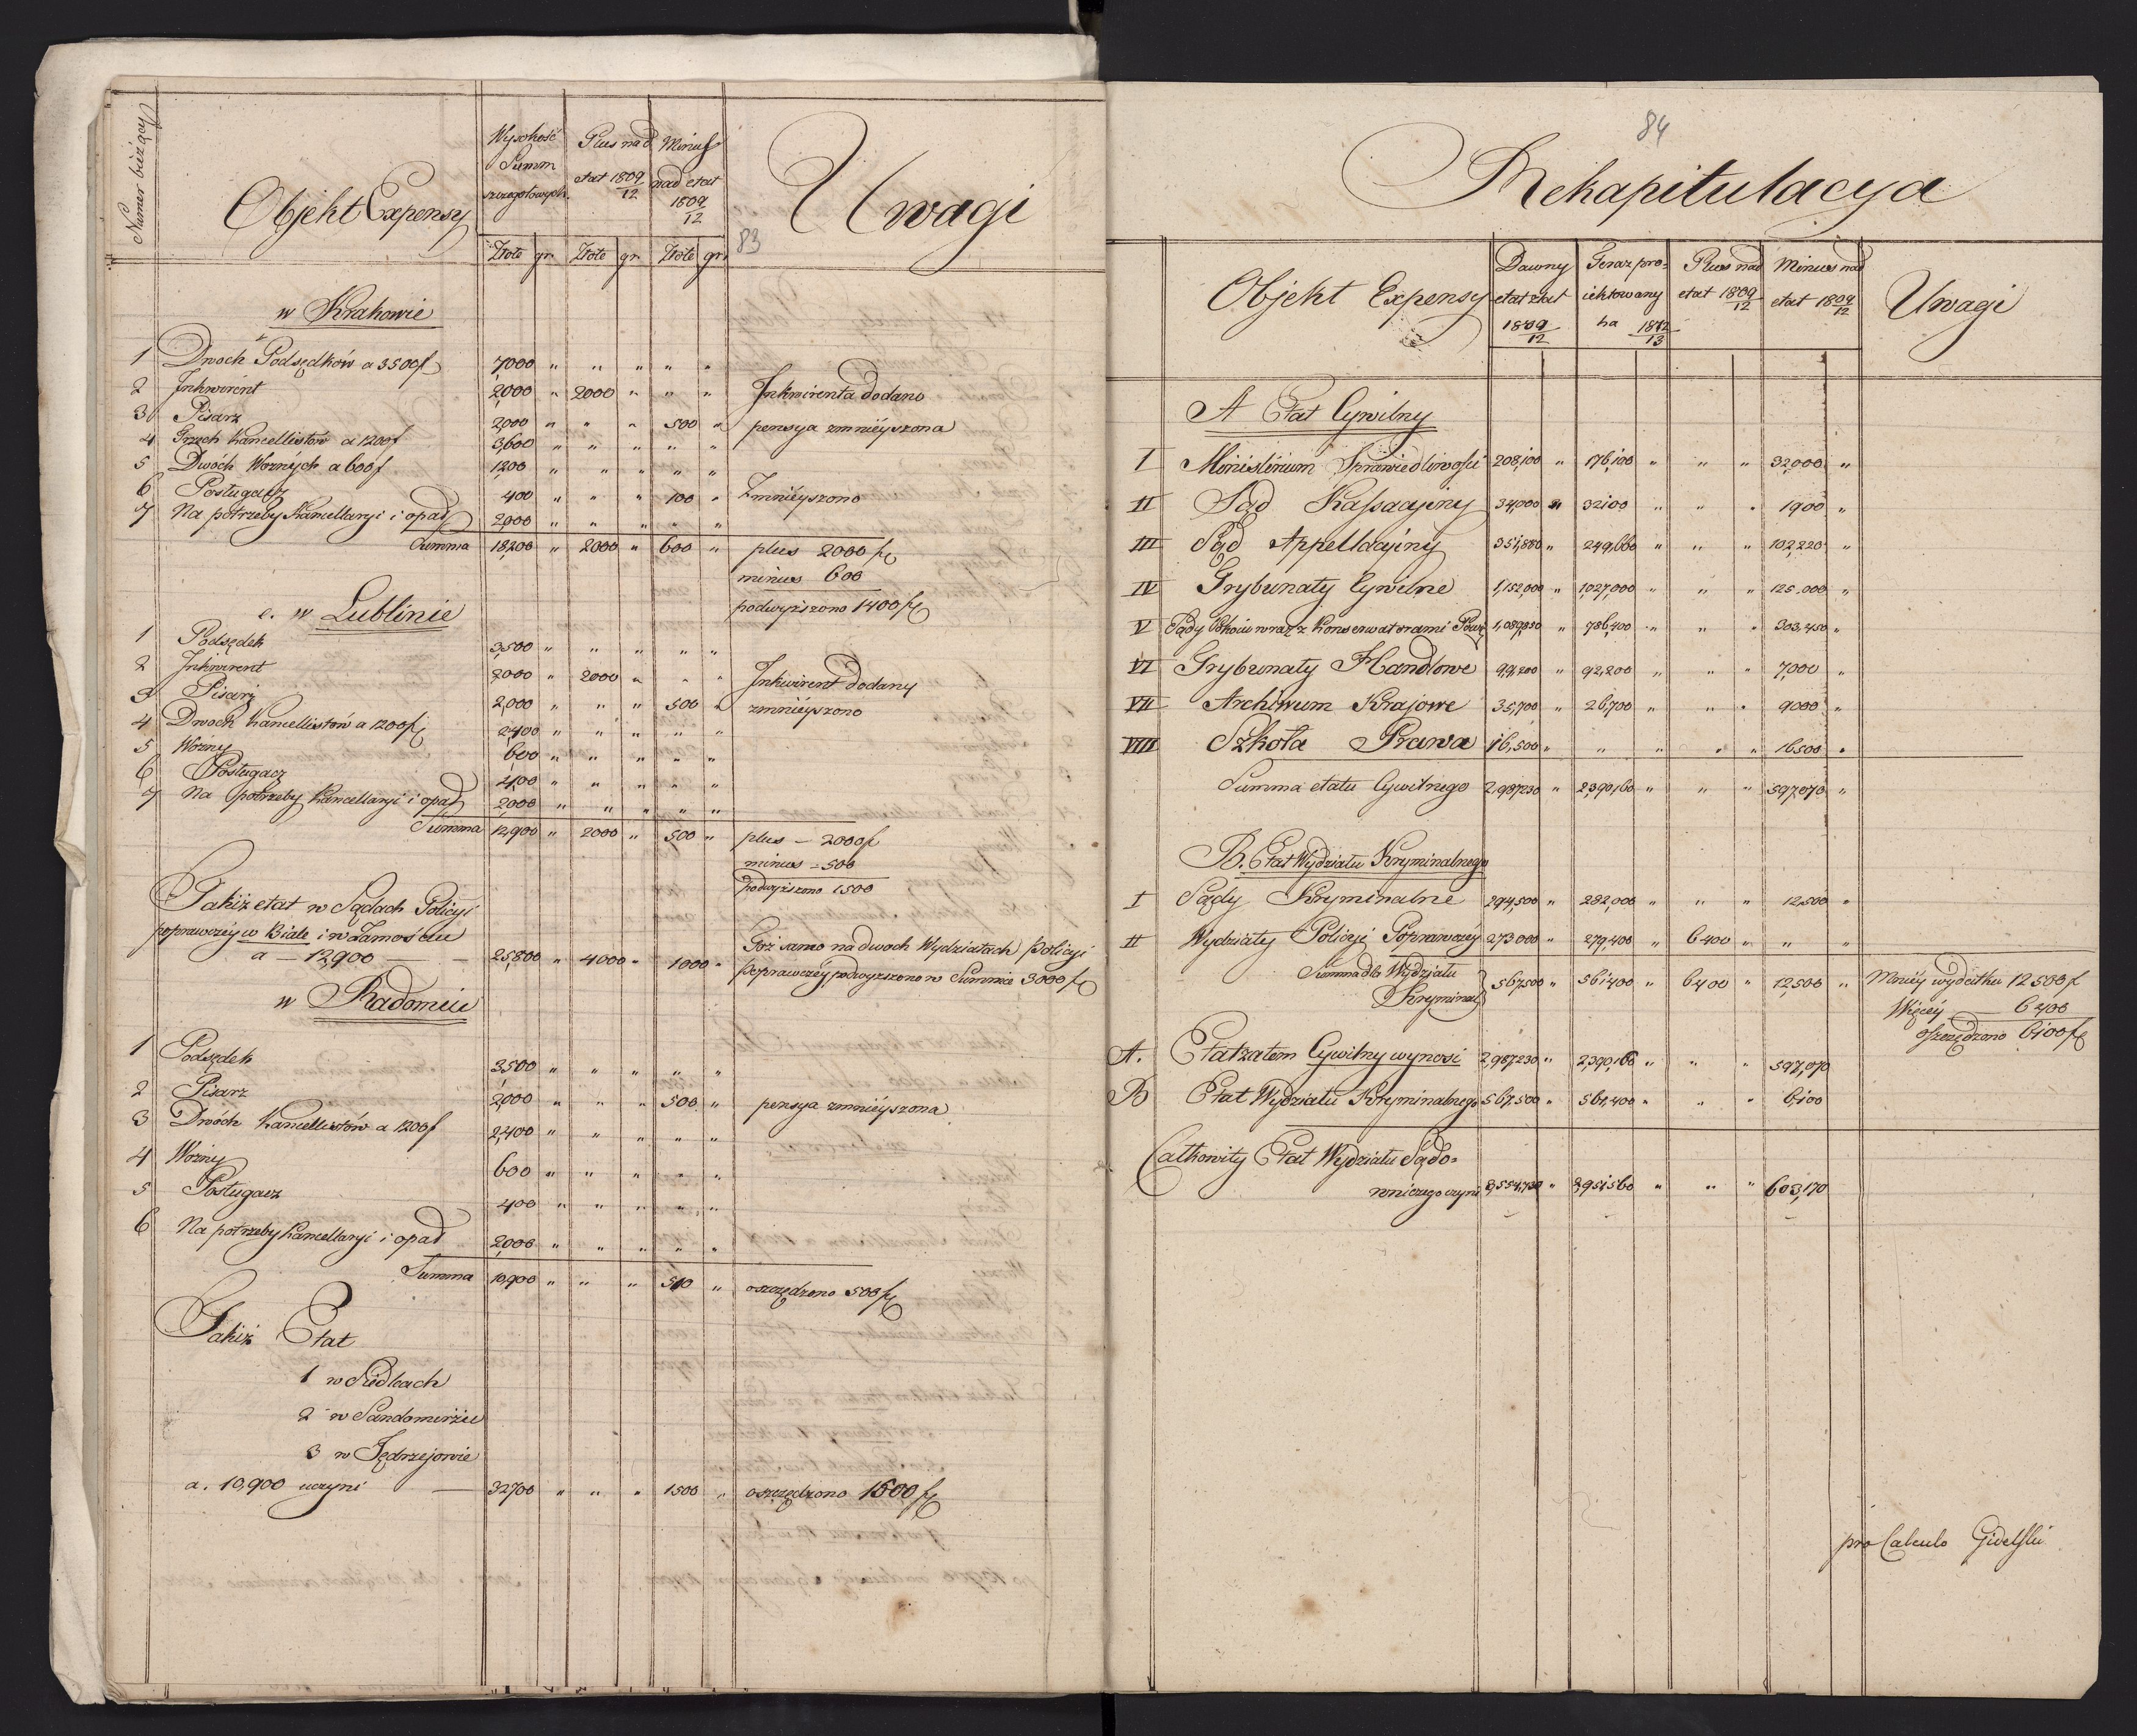 Numer bieżący
Objekt Expensy
Wysokość Summ szczegołowych
Plus nad etat 1809/12
Minus nad etat 1809/12
Uwagi
83
Złote gr. Złote gr. Złote gr.
w Krakowie
1 Dwoch Podsędków a 3500 f 7,000 " " " " "
2 Inkwirent 2,000 " 2000 " " " Inkwirenta dodano
3 Pisarz 2,000 " " " 500 " pensya zmnieyszona
4 Trzech Kancellistów a 1200 f 3,600 " " " " "
5 Dwóch Woznych a 600 f 1,200 " " " " "
6 Posługacz 400 " " " 100 " Zmnieyszono
7 Na potrzeby Kancellaryi i opał 2,000 " " " " "
Summa 18,200 " 2000 " 600 " plus 2000 f
minus 600
podwyższono 1400 f
e. w Lublinie
1 Podsędek 3,500 " " " " "
2 Inkwirent 2000 " 2000 " " " Inkwirent dodany
3 Pisarz 2,000 " " " 500 " zmnieyszono
4 Dwóch Kancellistów a 1200 f 2,400 " " " " "
5 Wozny 600 " " " " "
6 Posługacz 400 " " " " "
7 Na potrzeby Kancellaryi i opał 2,000 " " " " "
Summa 12,900 " 2000 " 500 " plus – 2000 f
minus – 500
Podwyższono 1500
Takiż etat w Sądach Policyi
poprawczey w Białe i w Zamościu
a — 12,900 — — 25,800 " 4000 " 1000 " Toż samo na dwoch Wydziałach Policyi
poprawczey podwyzszono w Summie 3000 f
w Radomiu
1 Podsędek 3,500 " " " " "
2 Pisarz 2,000 " " " 500 " pensya zmnieyszona
3 Dwóch Kancellistów a 1200 f 2,400 " " " " "
4 Wozny 600 " " " " "
5 Posługacz 400 " " " " "
6 Na potrzeby Kancellaryi i opał 2,000 " " " " "
Summa 10,900 " " " 500 " oszczędzono 500 f
Takiż Etat
1 w Siedlcach
2 w Sandomirzu
3 w Jędrzejowie
a. 10,900 uczyni — 32700 " " " 1500 " oszczędzono 1500 f
84
Rekapitulacya
Objekt Expensy
Dawny etat z lat 1809/12
Teraz projektowany na 1812/13
Plus nad etat 1809/12
Minus nad etat 1809/12
Uwagi
A Etat Cywilny
I Ministerium Sprawiedliwości 208,100 " 176,100 " " " 32,000 "
II Sąd Kassacyiny 34,000 " 32100 " " " 1900 "
III Sąd Appellacyiny 351,880 " 249,660 " " " 102,220 "
IV Trybunały Cywilne 1,152,000 " 1,027,000 " " " 125,000 "
V Sądy Pokoiu wraz z Konserwatorami 1,089,850 " 786,400 " " " 303,450 "
VI Trybunały Handlowe 99,200 " 92,200 " " " 7,000 "
VII Archiwum Krajowe 35,700 " 26,700 " " " 9000 "
VIII Szkoła Prawa 16,500 " " " " " 16500 "
Summa etatu Cywilnego 2,987230 " 2,390,160 " " " 597,070 "
B. Etat Wydziału Kryminalnego
I Sądy Kryminalne 294,500 " 282,000 " " " 12,500 "
II Wydziały Policyi Poprawczey 273000 " 279,400 " 6400 " " "
Summa dla Wydziału
Kryminal: 567,500 " 561400 " 6400 " 12,500 " Mniey wydatku 12500 f
Więcey 6400
oszczędzono 6100 f
A. Etat zatem Cywilny wynosi 2,987230 " 2,390,160 " " " 597,070
B Etat Wydziału Kryminalnego 567,500 " 561,400 " " " 6,100
Całkowity Etat Wydziału Sądo=
wniczego czyni 3,554,730 " 2,951560 " " " 603,170
pro Calculo Gidelski